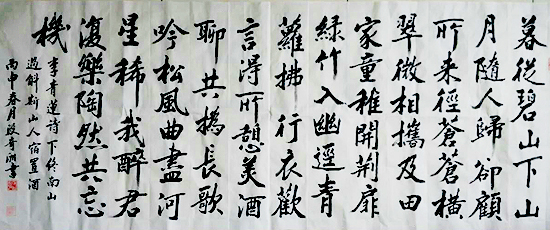 暮從碧山下山
月隨人歸卻顧
所来徑蒼蒼橫
翠微相攜及田
家童稚開荆扉
綠竹入幽逕青
蘿拂行衣歡
言得所憩美酒
聊共揮長歌
吟松風曲盡河
星稀我醉君
復樂陶然共忘
機
李青蓮詩下終南山
過斛斯山人宿置酒
丙申春月 書